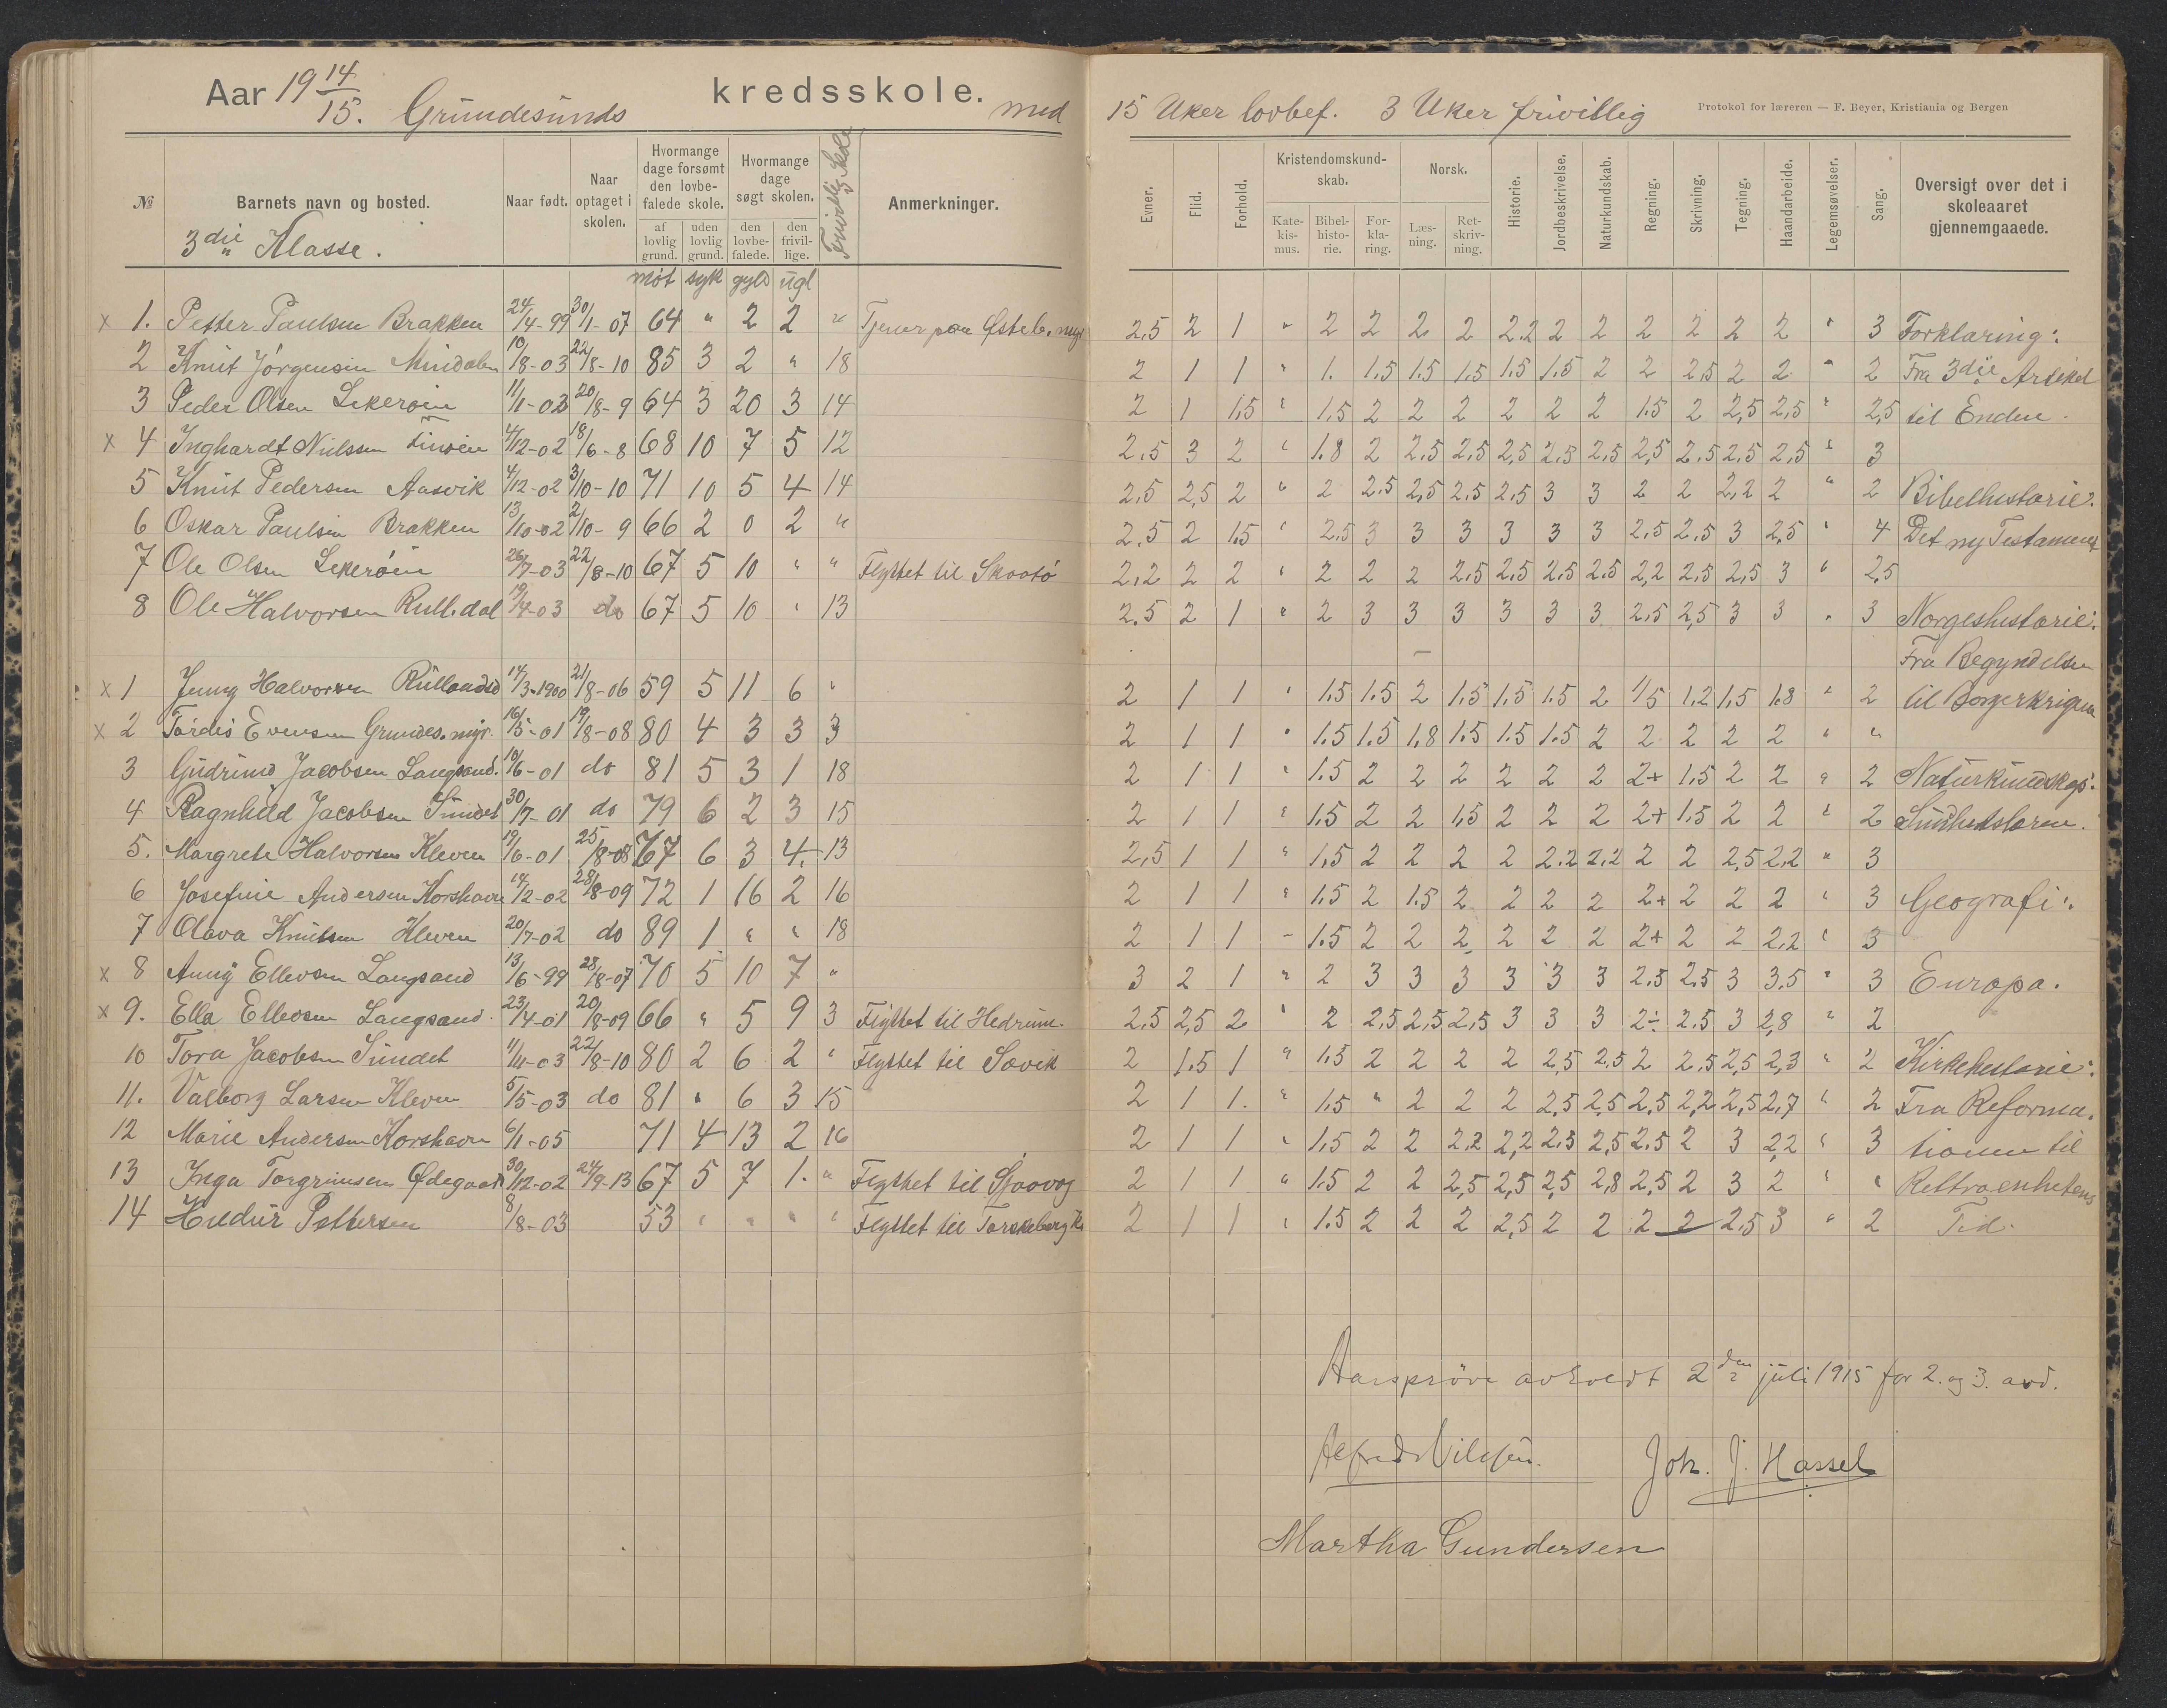 Aar 19 14/15. Grundesunds kredsskole. med 15 Uker lovbef. 3 Uker frivillig
Protokol for læreren — F. Beyer, Kristiania og Bergen
№ Barnets navn og bosted. Naar født. Naar optaget i skolen. Hvormange dage forsømt den lovbefalede skole. af lovlig grund. uden lovlig grund. Hvormange dage søgt skolen. den lovbefalede. den frivillige. Frivillig Skole Anmerkninger.
Evner. Flid. Forhold. Kristendomskundskab. Katekismus. Bibelhistorie. Forklaring. Norsk. Læsning. Retskrivning. Historie. Jordbeskrivelse. Naturkundskab. Regning. Skrivning. Tegning. Haandarbeide. Legemsøvelser. Sang. Oversigt over det i skoleaaret gjennemgaaede.
3die Klasse.
møt syk gyld ugl
x 1. Petter Paulsen Brakken 24/4-99 30/1-07 64 " 2 2 " Tjener paa Østeb. myr 2,5 2 1 " 2 2 2 2 2.2 2 2 2 2 2 2 " 3 Forklaring:
2 Knut Jørgensen 10/8-03 22/8-10 85 3 2 " 18 2 1 1 " 1. 1.5 1.5 1.5 1.5 1.5 2 2 2,5 2 2 " 2 Fra 3die Artikel
3 Peder Olsen Lekerøen 11/1-03 20/8-9 64 3 20 3 14 2 1 1,5 " 1.5 2 2 2 2 2 2 1.5 2 2,5 2,5 " 2,5 til Enden.
x 4 Inghardt Nilssen 4/12-02 18/6-8 68 10 7 5 12 2.5 3 2 " 1.8 2 2.5 2.5 2,5 2.5 2.5 2,5 2.5 2.5 2.5 " 3
5 Knut Pedersen Aasvik 4/12-02 3/10-10 71 10 5 4 14 2,5 2,5 2 " 2 2.5 2,5 2.5 2.5 3 3 2 2 2,2 2 " 2 Bibelhistorie:
6 Oskar Paulsen Brakken 13/10-02 2/10-9 66 2 0 2 " 2.5 2 1.5 " 2.5 3 3 3 3 3 3 2.5 2.5 3 2,5 " 4 Det ny Testament
7 Ole Olsen Lekerøen 26/7-03 22/8-10 67 5 10 " " Flyttet til Skaatø 2,2 2 2 " 2 2 2 2.5 2.5 2.5 2.5 2,2 2,5 2,5 3 " 2,5
8 Ole Halvorsen Rull.dal 19/4-03 do 67 5 10 " 13 2.5 2 1 " 2 3 3 3 3 3 3 2.5 2,5 3 3 " 3 Norgeshistorie:
Fra Begyndelsen
x 1 Jenny Halvorsen 14/3-1900 21/8-06 59 5 11 6 " 2 1 1 " 1.5 1.5 2 1.5 1.5 1.5 2 1/5 1.2 1.5 1.8 " 2 til Borgerkrigen
x 2 Tordis Evensen Grundes. myr. 16/5-01 19/8-08 80 4 3 3 3 2 1 1 " 1.5 1.5 1,8 1.5 1.5 1.5 2 2 2 2 2 " "
3 Gudrund Jacobsen Langsand. 10/6-01 do 81 5 3 1 18 2 1 1 " 1.5 2 2 2 2 2 2 2+ 1.5 2 2 " 2 Naturkundskap:
4 Ragnhild Jacobsen Sundet 30/7-01 do 79 6 2 3 15 2 1 1 " 1.5 2 2 1.5 2 2 2 2+ 1.5 2 2 " 2 Sundhetslæren.
5. Margrete Halvorsen Kleven 19/6-01 25/8-08 67 6 3 4. 13 2,5 1 1 " 1,5 2 2 2 2 2.2 2.2 2 2 2,5 2,2 " 3
6 Josefine Andersen Korshavn 14/12-02 28/8-09 72 1 16 2 16 2 1 1 " 1.5 2 1.5 2 2 2 2 2+ 2 2 2 " 3 Geografi:
7 Olava Knutsen Kleven 20/7-02 do 89 1 " " 18 2 1 1 - 1.5 2 2 2 2 2 2 2+ 2 2 2,2 " 3
x 8 Anny Ellevsen Langsand 13/6-99 28/8-07 70 5 10 7 " 3 2 1 " 2 3 3 3 3 3 3 2.5 2,5 3 3.5 " 3 Europa.
x 9. Ella Ellevsen Langsand. 23/4-01 20/8-09 66 " 5 9 3 Flyttet til Hedrum. 2.5 2,5 2 " 2 2,5 2,5 2,5 3 3 3 2÷ 2.5 3 2,8 " 2
10 Tora Jacobsen Sundet 11/11-03 22/8-10 80 2 6 2 " Flyttet til Søvik 2 1.5 1 " 1.5 2 2 2 2 2,5 2,5 2 2.5 2,5 2,3 " 2 Kirkehistorie:
11. Valborg Larsen Kleven 5/5-03 do 81 " 6 3 15 2 1 1. " 1.5 " 2 2 2 2,5 2,5 2,5 2,2 2,5 2,7 " 2 Fra Reforma-
12 Marie Andersen Korshavn 6/1-05 71 4 13 2 16 2 1 1 " 1.5 2 2 2,2 2,2 2.5 2,5 2.5 2 3 2,2 " 3 tionen til
13 Inga Torgrimsen Ødegaard 30/12-02 24/9-13 67 5 7 1. " Flyttet til 2 1 1 " 1.5 2 2 2,5 2,5 2,5 2,8 2,5 2 3 2 " " Rettroenhetens
14 Huldur Pettersen 8/8-03 53 " " " " Flyttet til 2 1 1 " 1.5 2 2 2 2,5 2 2 2 2 2.5 3 " 2 Tid.
Aarsprøve avholdt 2den juli 1915 for 2. og 3. avd.
Alfred Nilssen. Joh. J. Hassel
Martha Gundersen